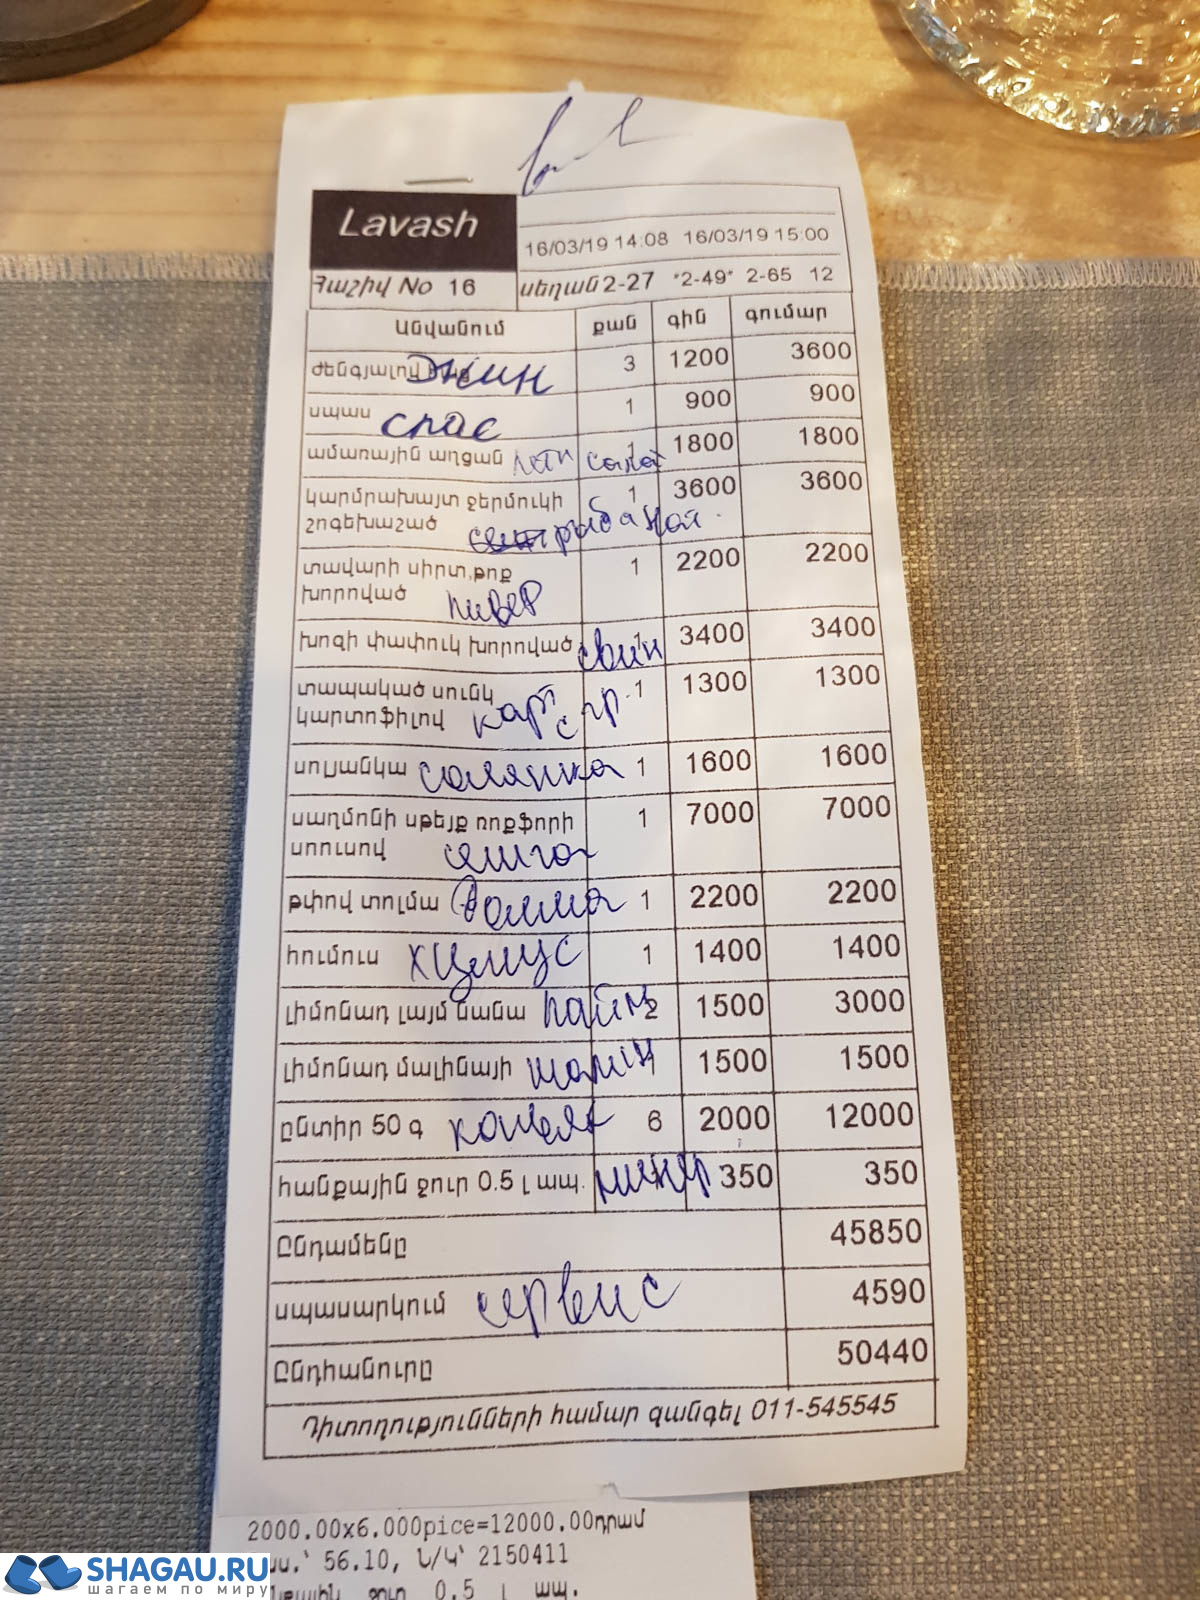 Lavash
16/03/19 14:08 16/03/19 15:00
Հաշիվ No 16 սեղան 2-27 *2-49* 2-65 12
Անվանում քան գին գումար
ժենգյալով 3 1200 3600
սպաս спас 1 900 900
ամառային աղցան летн салат 1 1800 1800
կարմրախայտ ջերմուկի 1 3600 3600
շոգեխաշած рыба
տավարի սիրտ,թոք 1 2200 2200
խորոված ливер
խոզի փափուկ խորոված свин 1 3400 3400
տապակած սունկ 1 1300 1300
կարտոֆիլով карт с гр.
սոլյանկա солянка 1 1600 1600
սաղմոնի սթեյք ռոքֆորի 1 7000 7000
սոուսով семга
թփով տոլմա долма 1 2200 2200
հումուս хумус 1 1400 1400
լիմոնադ լայմ նանա лайм 2 1500 3000
լիմոնադ մալինայի малин 1 1500 1500
ընտիր 50 գ коньяк 6 2000 12000
հանքային ջուր 0.5 լ ապ. минер 350 350
Ընդամենը 45850
սպասարկում сервис 4590
Ընդհանուրը 50440
Դիտողությունների համար զանգել 011-545545
2000.00x6.000pice=12000.00դրամ
56.10, Ն/Կ՝ 2150411
ջուր 0.5 լ ապ.
SHAGAU.RU
шагаем по миру